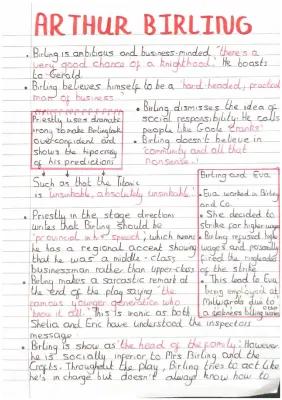 ARTHUR BIRLING
• Birling is ambitious and business-minded, "there's a
very good chance of a knighthood". He boasts
to Gerald
• Birling believes himself to be a "hard headed, practical
man of business"
• Birling dismisses the idea of
social responsibility. He calls
people like Goole 'cranks'
• Birling doesn't believe in
"community and all that
nonsense"
Priestly uses dramatic
irony to make Birling look
overconfident and
shows the hipocracy
of his predictions
Such as that the Titanic
is "unsinkable, absolutely unsinkable"
• Priestly in the stage direction
writes that Birling should be
"provincial in his speech", which means
he has a regional accent showing
that he was a middle-class
businessman rather than upper-class
• Birling makes a sarcastic remark at
the end of the play saying "the
famous younger generation who
know it all". This is ironic as both
Sheila and Eric have understood the inspectors
message
Birling and Eva
• Eva worked in Birling
and Co.
• She decided to
strike for higher wages
• Birling refused high
wages and
fired the ringleader
of the strike
• This lead to Eva
being employed at
Millwards due to
• Birling is show as "the head of the family". However
he is socially inferior to Mrs Birling and the
Crofts. Throughout the play, Birling tries to act like
he's in charge but doesn't always know how to